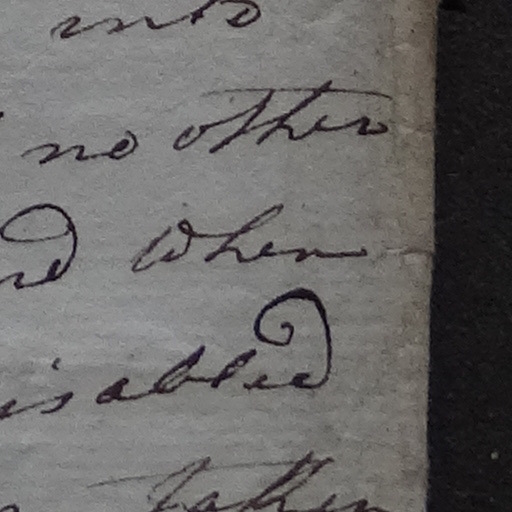 into
no other
when
isabled
taken